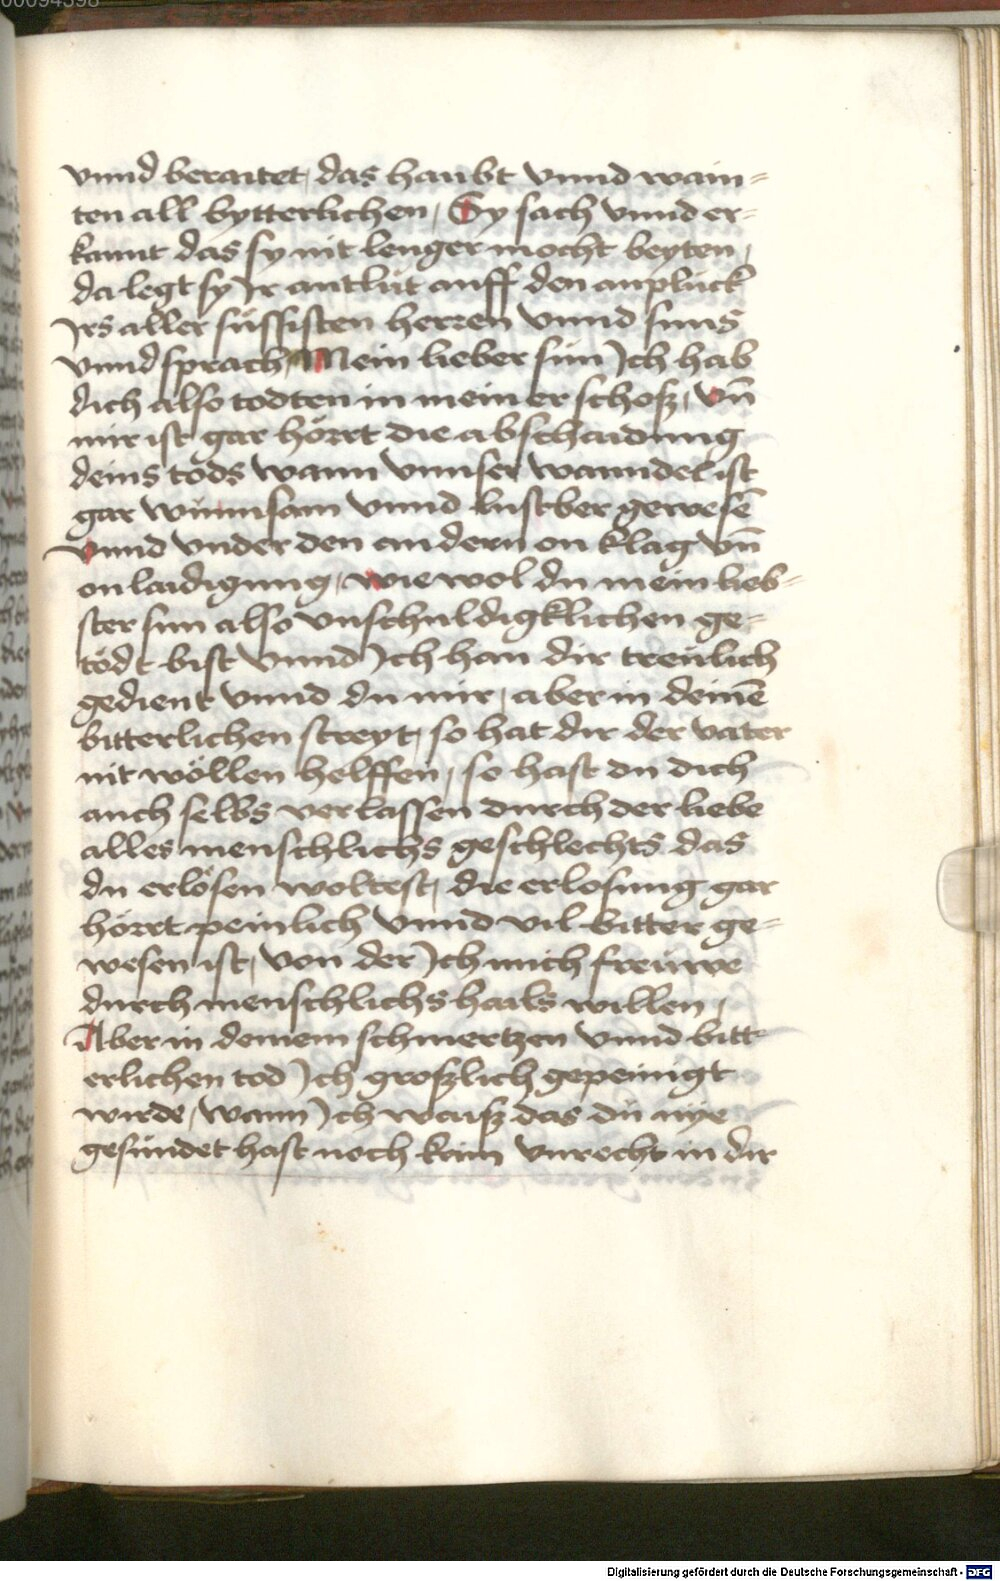 00094398
vnnd beraitet, das haubt vnnd wain⸗
ten all bytterlichen, Sy sach vnnd er⸗
kannt das sy nit lenger mocht beyten,
da legt sy Ir antlüt auff den anplück
Irs aller süssisten herren vnnd suns
vnnd sprach, Mein lieber sün Ich hab
dich also todten in meiner schosz, vn̄
mir ist gar hörrt die abschaidung
deins töds wann vnnser wanndel ist
gar wünnsam vnnd lustber gewesē
vnnd vnder den andern on klag vn̄
on laidigung, wie wol du mein lieb⸗
ster sun also vnschuldigklichen ge⸗
tödt bist vnnd Ich han dir treülich
gedient vnnd du mir, aber in deinē
bitterlichen streyt, so hat dir der vater
nit wöllen helffen, so hast du dich
auch selbs verlassen durch der liebe
alles menschlichs geschlechts das
du erlösen woltest, die erlosung gar
hörrt peinlich vnnd vil bitter ge⸗
wesen ist, von der Ich mich freüwe
durch menschlichs hails willen,
Aber in deinem schmertzen vnnd bitt
erlichen tod Ich groszlich gepeinigt
wirde, wann Ich waisz das du nye
gesündet hast noch kain vnrecht in dir
Digitalisierung gefördert durch die Deutsche Forschungsgemeinschaft - DFG